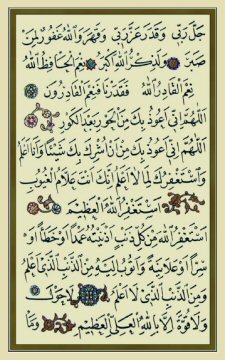 جَلَّ رَبِّي وَقَدَرَ عَزَّ رَبِّي وَقَهَرَ وَاللّٰهُ غَفُورٌ لِمَنْ
صَبَرَ وَلَذِكْرُ اللّٰهِ اَكْبَرُ نِعْمَ الْحَافِظُ اللّٰهُ
نِعْمَ الْقَادِرُ اللّٰهُ فَقَدَرْنَا فَنِعْمَ الْقَادِرُونَ
اَللّٰهُمَّ اِنِّي اَعُوذُ بِكَ مِنَ الْحَوْرِ بَعْدَ الْكَوْرِ
اَللّٰهُمَّ اِنِّي اَعُوذُ بِكَ مِنْ اَنْ اُشْرِكَ بِكَ شَيْئًا وَاَنَا اَعْلَمُ
وَاَسْتَغْفِرُكَ لِمَا لَا اَعْلَمُ اِنَّكَ اَنْتَ عَلَّامُ الْغُيُوبِ
اَسْتَغْفِرُ اللّٰهَ الْعَظِيمَ
اَسْتَغْفِرُ اللّٰهَ مِنْ كُلِّ ذَنْبٍ اَذْنَبْتُهُ عَمْدًا اَوْ خَطَاً اَوْ
سِرًّا اَوْ عَلَانِيَةً وَاَتُوبُ اِلَيْهِ مِنَ الذَّنْبِ الَّذِي اَعْلَمُ
وَمِنَ الذَّنْبِ الَّذِي لَا اَعْلَمُ لَا حَوْلَ
وَلَا قُوَّةَ اِلَّا بِاللّٰهِ الْعَلِيِّ الْعَظِيمِ وَمَا